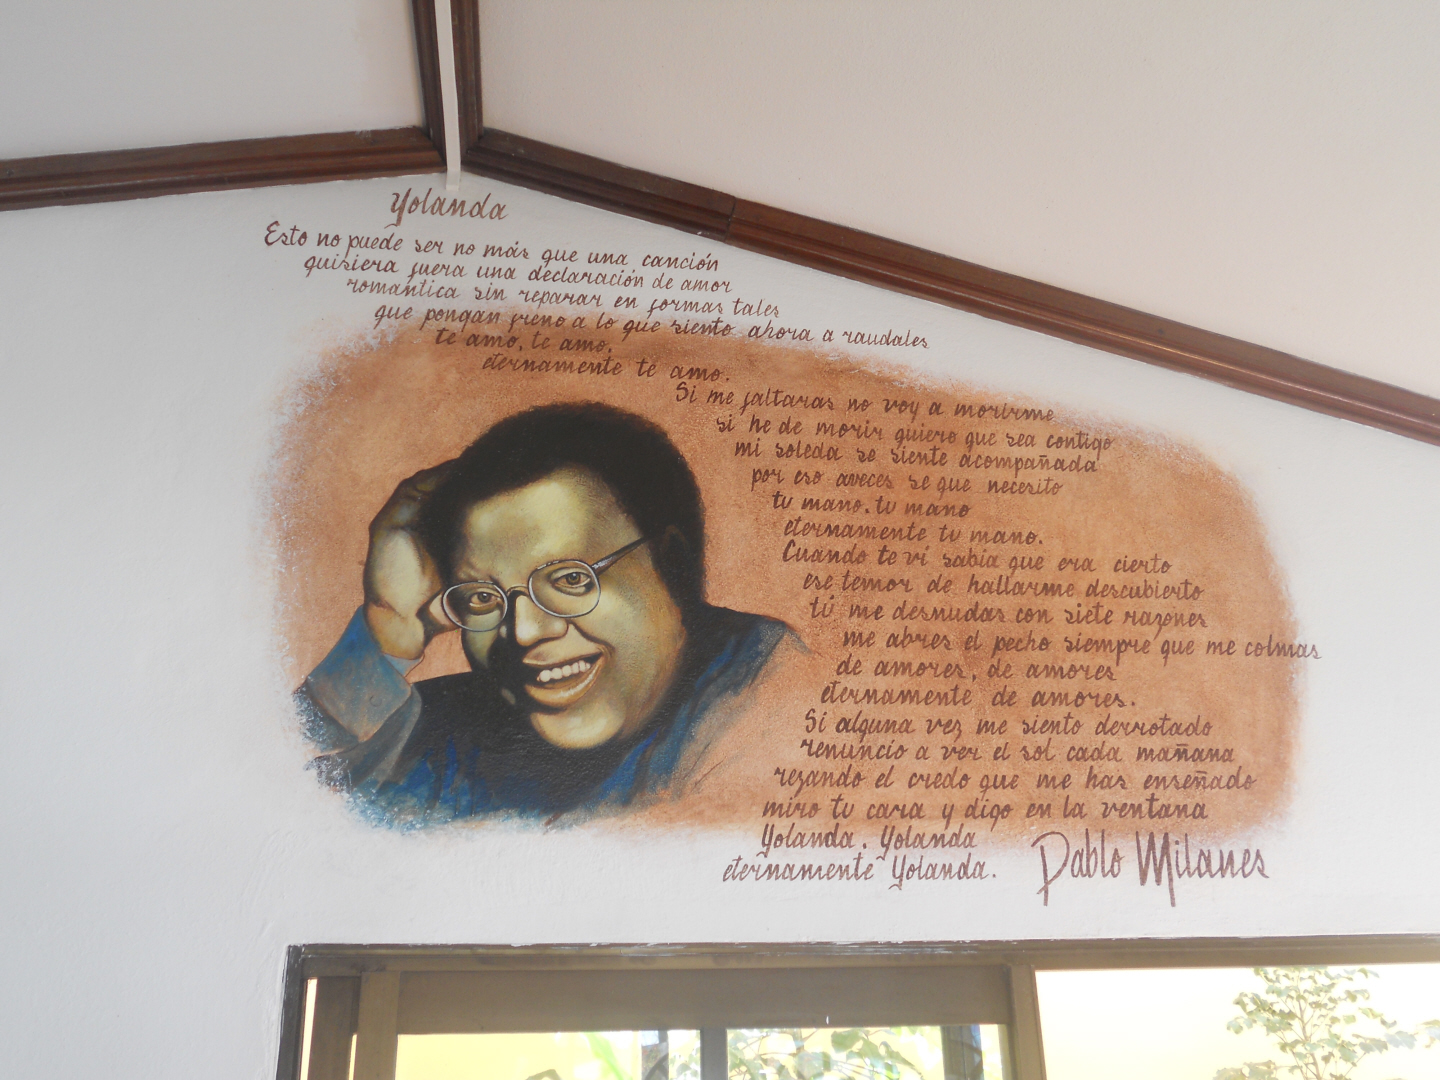 Yolanda
Esto no puede ser no más que una canción
quisiera fuera una declaración de amor
romantica sin reparar en formas tales
que pongan freno a lo que siento ahora a raudales
te amo, te amo,
eternamente te amo.
Si me faltaras no voy a morirme
si he de morir quiero que sea contigo
mi soleda se siente acompañada
por eso aveces se que necesito
tu mano, tu mano
eternamente tu mano.
Cuando te ví sabía que era cierto
ese temor de hallarme descubierto
tú me desnudas con siete razones
me abres el pecho siempre que me colmas
de amores, de amores
eternamente de amores.
Si alguna vez me siento derrotado
renuncio a ver el sol cada mañana
rezando el credo que me has enseñado
miro tu cara y digo en la ventana
Yolanda, Yolanda
eternamente Yolanda.
Pablo Milanes